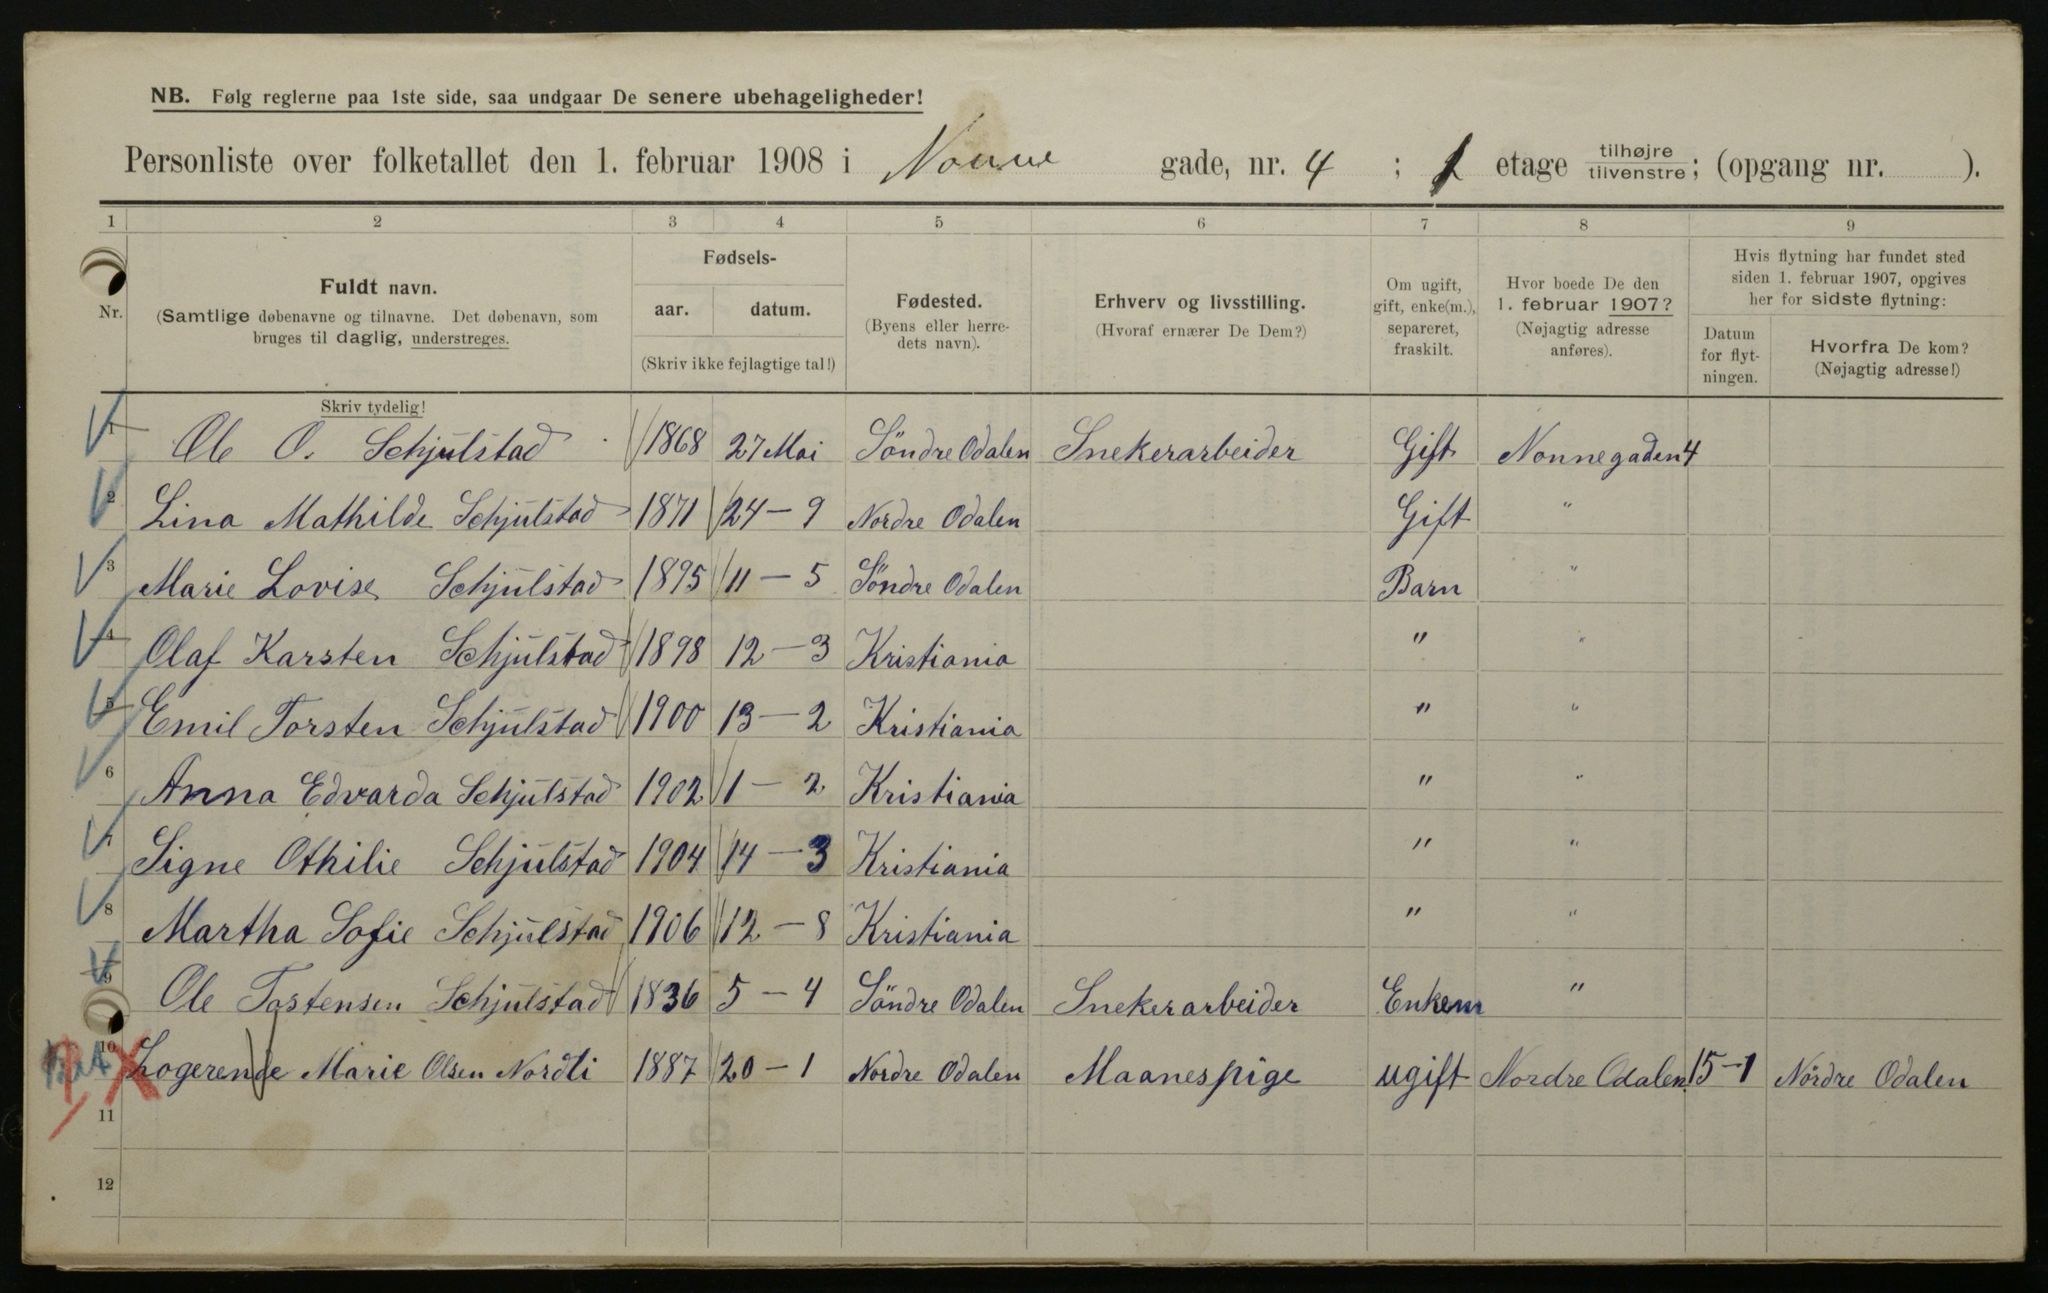 NB. Følg reglerne paa 1ste side, saa undgaar De senere ubehageligheder!
Personliste over folketallet den 1. februar 1908 i Nonne gade, nr. 4 ; 1 etage tilhøjre tilvenstre; (opgang nr. ).
1 2 3 4 5 6 7 8 9
Nr.
Fuldt navn.
(Samtlige døbenavne og tilnavne. Det døbenavn, som
bruges til daglig, understreges.
Skriv tydelig!
Fødsels-
aar. datum.
(Skriv ikke fejlagtige tal!)
Fødested.
(Byens eller herre-
dets navn).
Erhverv og livsstilling.
(Hvoraf ernærer De Dem?)
Om ugift,
gift, enke(m.),
separeret,
fraskilt.
Hvor boede De den
1. februar 1907?
(Nøjagtig adresse
anføres).
Hvis flytning har fundet sted
siden 1. februar 1907, opgives
her for sidste flytning:
Datum
for flyt-
ningen.
Hvorfra De kom?
(Nøjagtig adresse!)
1 Ole O. Schjulstad 1868 27 Mai Söndre Odalen Snekerarbeider Gift Nonnegaden 4
2 Lina Mathilde Schjulstad 1871 24-9 Nordre Odalen Gift "
3 Marie Lovise Schjulstad 1895 11-5 Söndre Odalen Barn "
4 Olaf Karsten Schjulstad 1898 12-3 Kristiania " "
5 Emil Torsten Schjulstad 1900 13-2 Kristiania " "
6 Anna Edvarda Schjulstad 1902 1-2 Kristiania " "
7 Signe Othilie Schjulstad 1904 14-3 Kristiania " "
8 Martha Sofie Schjulstad 1906 12-8 Kristiania " "
9 Ole Tostensen Schjulstad 1836 5-4 Söndre Odalen Snekerarbeider Enkem "
10 Logerende Marie Olsen Nordli 1887 20-1 Nordre Odalen Maanespige ugift Nordre Odalen 15-1 Nordre Odalen
11
12